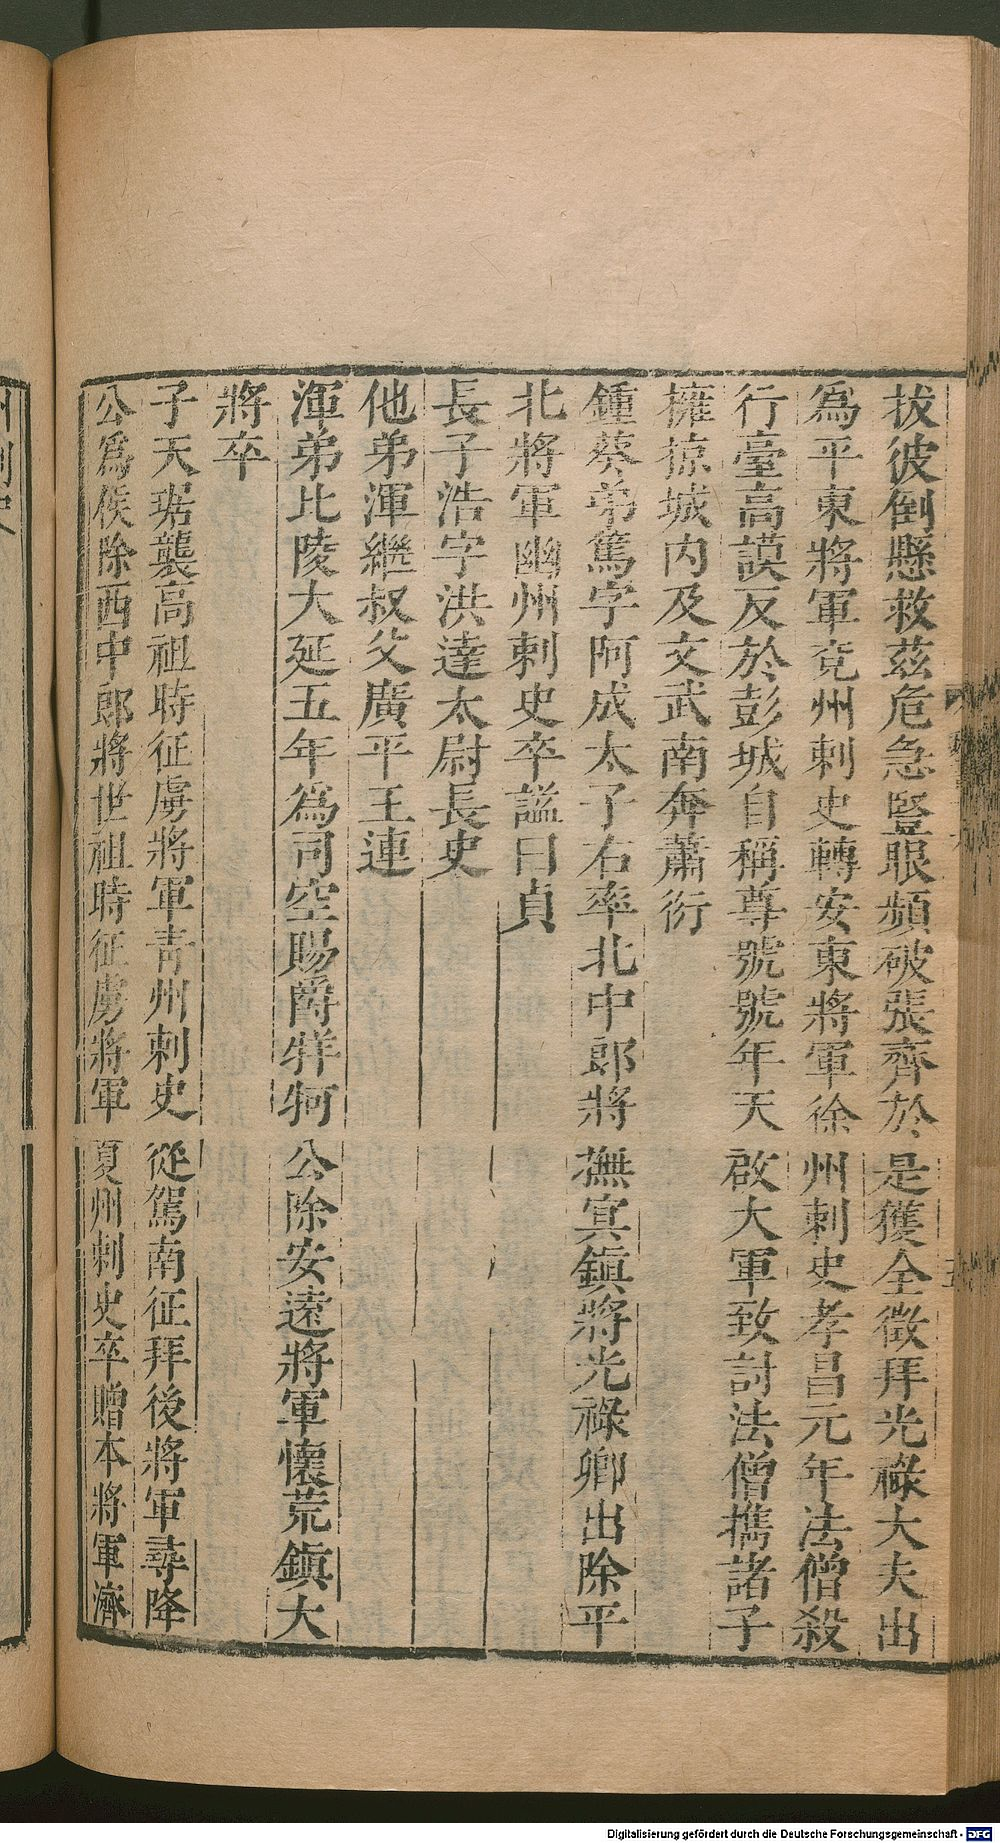 拔彼倒懸救茲危急豎眼頻破張齊於是獲全徵拜光祿大夫出
爲平東將軍兗州刺史轉安東將軍徐州刺史孝昌元年法僧殺
行臺高謨反於彭城自稱尊號號年天啟大軍致討法僧攜諸子
擁掠城內及文武南奔蕭衍
鍾葵弟篤字阿成太子右率北中郎將撫冥鎮將光祿卿出除平
北將軍幽州刺史卒謚曰貞
長子浩字洪達太尉長史
他弟渾繼叔父廣平王連
渾弟比陵太延五年爲司空賜爵牂牁公除安遠將軍懷荒鎮大
將卒
子天琚襲高祖時征虜將軍青州刺史從駕南征拜後將軍尋降
公爲侯除西中郎將世祖時征虜將軍夏州刺史卒贈本將軍濟
州刺史
Digitalisierung gefördert durch die Deutsche Forschungsgemeinschaft - DFG